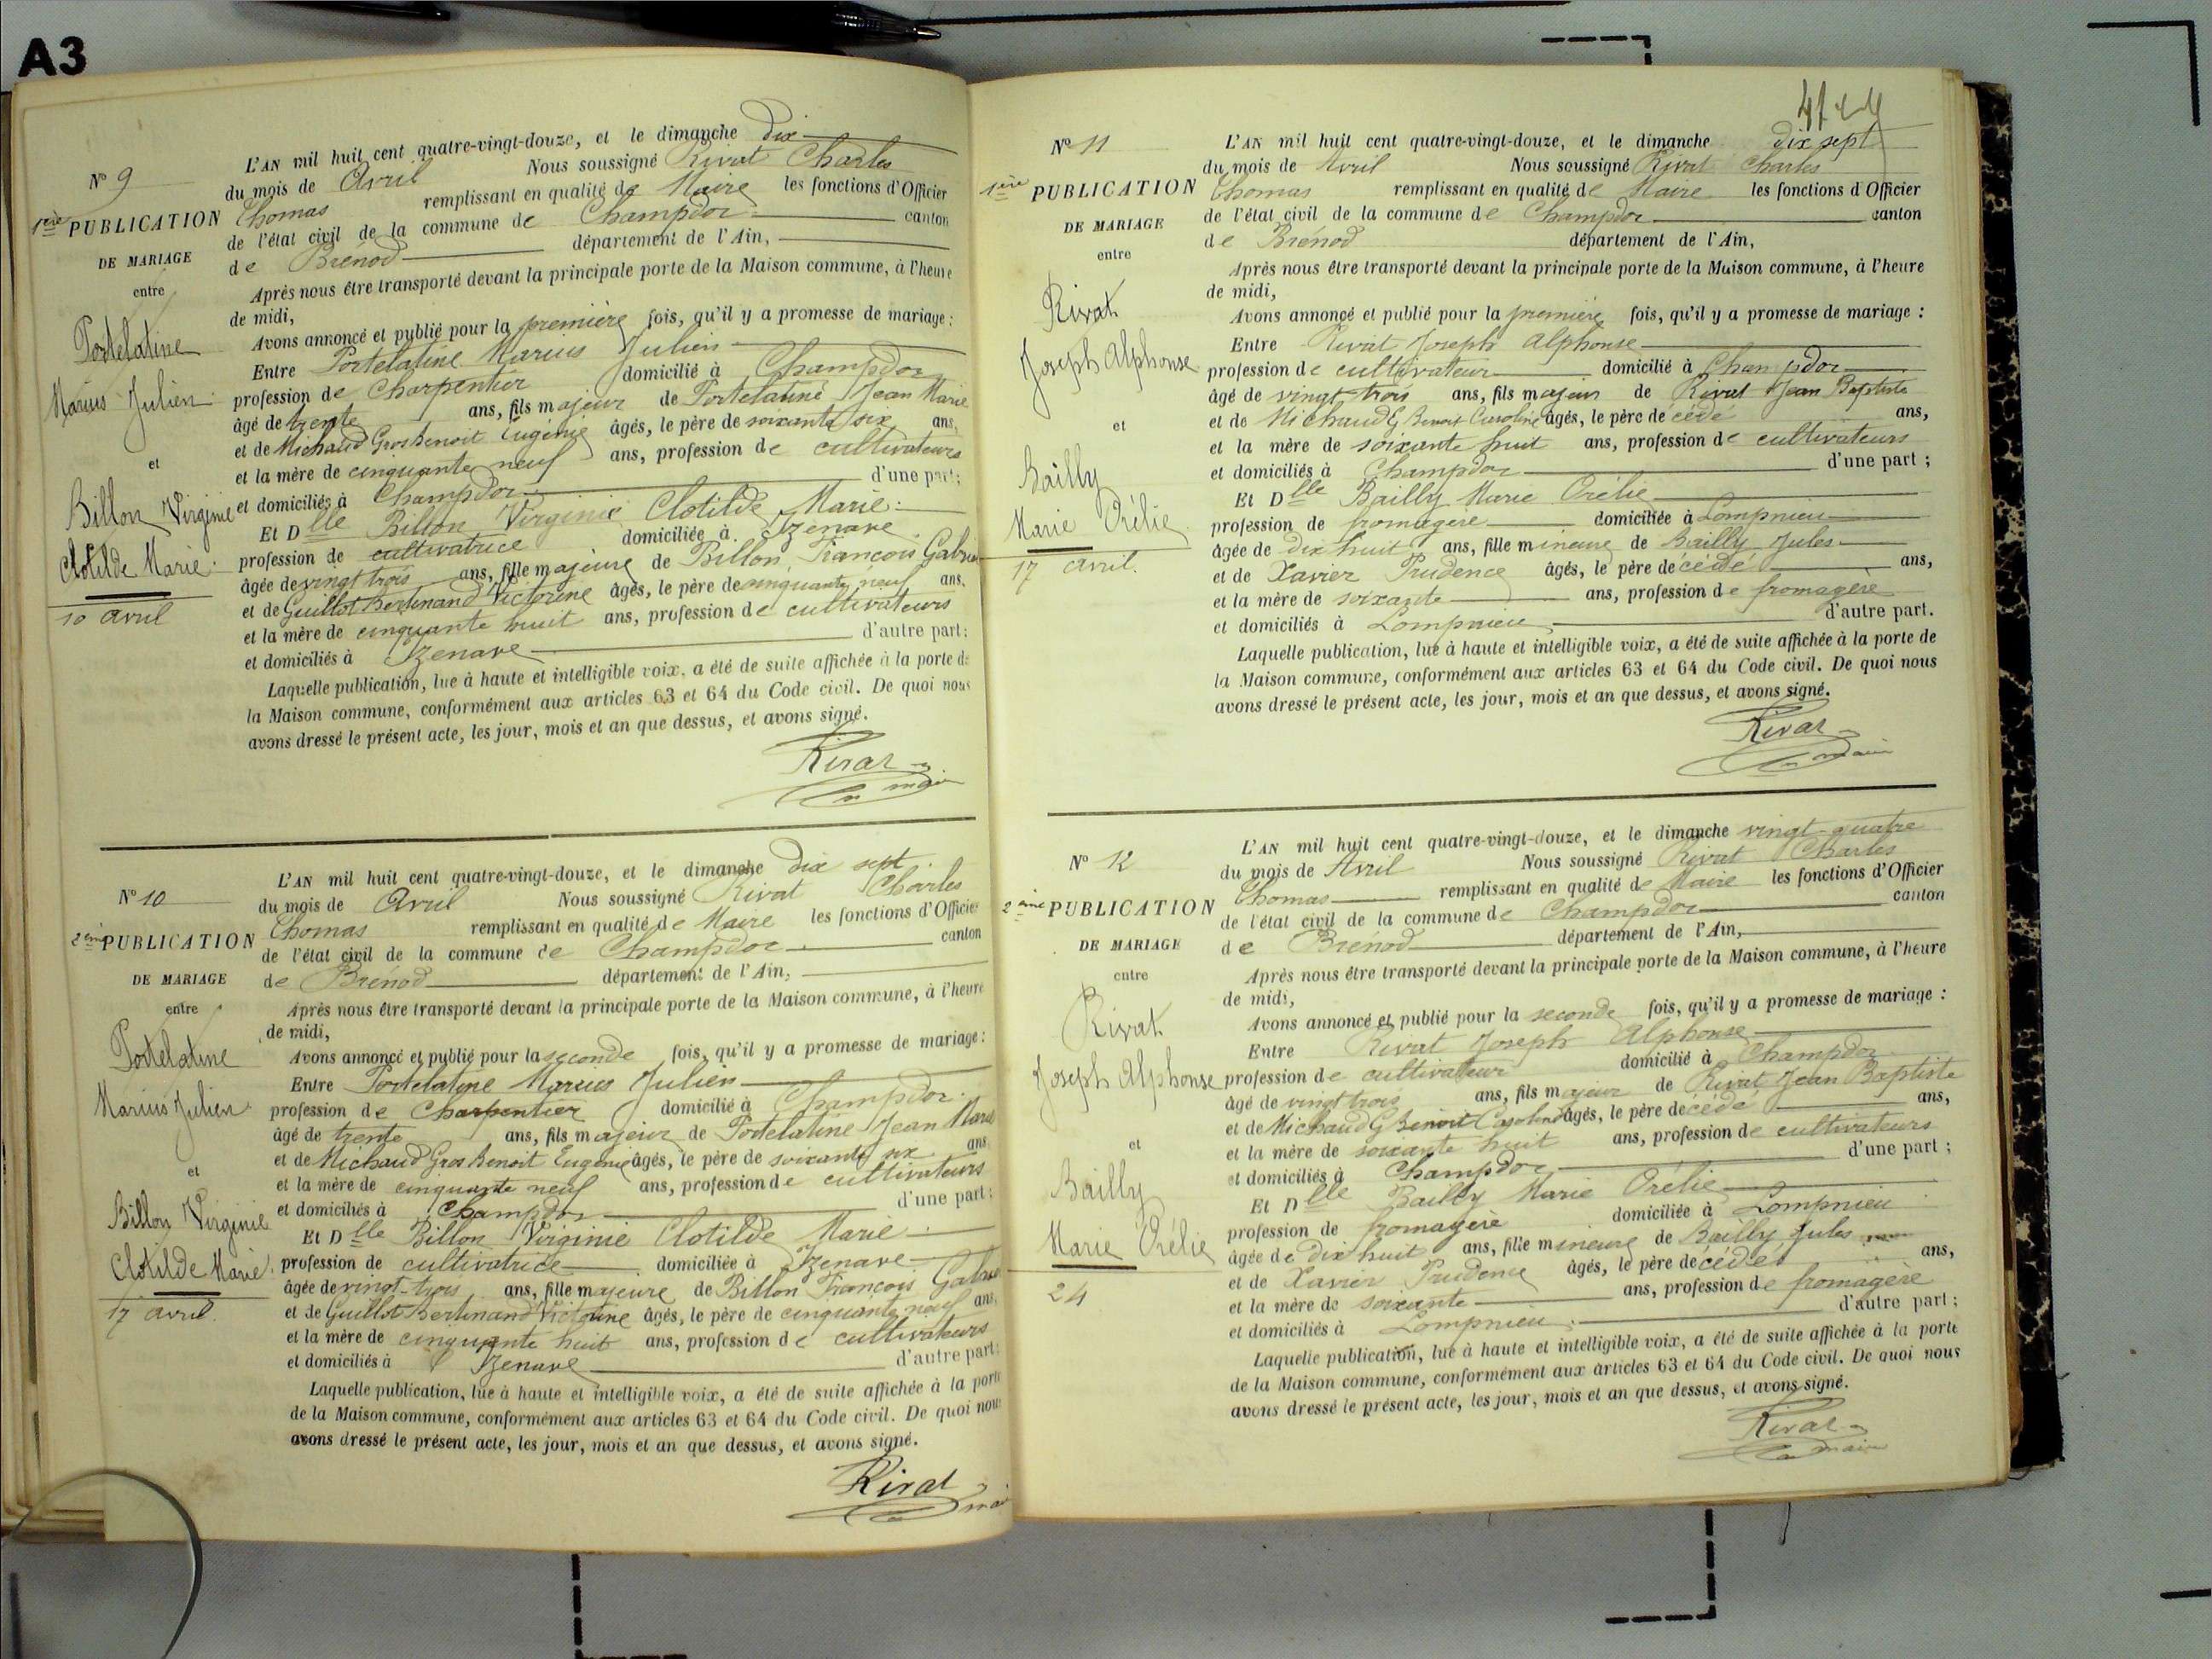 A3
N° 9
1ère PUBLICATION
DE MARIAGE
entre
Portelatine
Marius Julien
et
Billon Virginie
Clotilde Marie
10 avril
L'AN mil huit cent quatre-vingt-douze, et le dimanche dix
du mois de Avril Nous soussigné Rivat Charles
Thomas remplissant en qualité de Maire les fonctions d'Officier
de l'état civil de la commune de Champdor canton
de Brénod département de l'Ain,
Après nous être transporté devant la principale porte de la Maison commune, à l'heure
de midi,
Avons annoncé et publié pour la première fois, qu'il y a promesse de mariage :
Entre Portelatine Marius Julien
profession de Charpentier domicilié à Champdor
âgé de trente ans, fils majeur de Portelatine Jean Marie
et de Michaud Gros Benoit Eugénie âgés, le père de soixante six ans,
et la mère de cinquante neuf ans, profession de cultivateurs
et domiciliés à Champdor d'une part;
Et Dlle Billon Virginie Clotilde Marie
profession de cultivatrice domiciliée à Izenave
âgée de vingt trois ans, fille majeure de Billon François Gabriel
et de Guillot Bertinand Victorine âgés, le père de cinquante neuf ans,
et la mère de cinquante huit ans, profession de cultivateurs
et domiciliés à Izenave d'autre part;
Laquelle publication, lue à haute et intelligible voix, a été de suite affichée à la porte de
la Maison commune, conformément aux articles 63 et 64 du Code civil. De quoi nous
avons dressé le présent acte, les jour, mois et an que dessus, et avons signé.
Rivat
N° 10
2ème PUBLICATION
DE MARIAGE
entre
Portelatine
Marius Julien
et
Billon Virginie
Clotilde Marie
17 avril
L'AN mil huit cent quatre-vingt-douze, et le dimanche dix sept
du mois de Avril Nous soussigné Rivat Charles
Thomas remplissant en qualité de Maire les fonctions d'Officier
de l'état civil de la commune de Champdor canton
de Brénod département de l'Ain,
Après nous être transporté devant la principale porte de la Maison commune, à l'heure
de midi,
Avons annoncé et publié pour la seconde fois, qu'il y a promesse de mariage :
Entre Portelatine Marius Julien
profession de Charpentier domicilié à Champdor
âgé de trente ans, fils majeur de Portelatine Jean Marie
et de Michaud Gros Benoit Eugénie âgés, le père de soixante six ans
et la mère de cinquante neuf ans, profession de cultivateurs
et domiciliés à Champdor d'une part;
Et Dlle Billon Virginie Clotilde Marie
profession de cultivatrice domiciliée à Izenave
âgée de vingt-trois ans, fille majeure de Billon François Gabriel
et de Guillot Bertinand Victorine âgés, le père de cinquante neuf ans,
et la mère de cinquante huit ans, profession de cultivateurs
et domiciliés à Izenave d'autre part;
Laquelle publication, lue à haute et intelligible voix, a été de suite affichée à la porte
de la Maison commune, conformément aux articles 63 et 64 du Code civil. De quoi nous
avons dressé le présent acte, les jour, mois et an que dessus, et avons signé.
Rivat
N° 11
1ère PUBLICATION
DE MARIAGE
entre
Rivat
Joseph Alphonse
et
Bailly
Marie Orélie
17 avril.
L'AN mil huit cent quatre-vingt-douze, et le dimanche dix sept
du mois de Avril Nous soussigné Rivat Charles
Thomas remplissant en qualité de Maire les fonctions d'Officier
de l'état civil de la commune de Champdor canton
de Brénod département de l'Ain,
Après nous être transporté devant la principale porte de la Maison commune, à l'heure
de midi,
Avons annoncé et publié pour la première fois, qu'il y a promesse de mariage :
Entre Rivat Joseph Alphonse
profession de cultivateur domicilié à Champdor
âgé de vingt-trois ans, fils majeur de Rivat Jean Baptiste
et de Michaud G Benoit Caroline âgés, le père décédé ans,
et la mère de soixante huit ans, profession de cultivateurs
et domiciliés à Champdor d'une part ;
Et Dlle Bailly Marie Orélie
profession de fromagère domiciliée à Lompnieu
âgée de dix huit ans, fille mineure de Bailly Jules
et de Xavier Prudence âgés, le père décédé ans,
et la mère de soixante ans, profession de fromagère
et domiciliés à Lompnieu d'autre part.
Laquelle publication, lue à haute et intelligible voix, a été de suite affichée à la porte de
la Maison commune, conformément aux articles 63 et 64 du Code civil. De quoi nous
avons dressé le présent acte, les jour, mois et an que dessus, et avons signé.
Rivat
N° 12
2ème PUBLICATION
DE MARIAGE
entre
Rivat
Joseph Alphonse
et
Bailly
Marie Orélie
24
L'AN mil huit cent quatre-vingt-douze, et le dimanche vingt-quatre
du mois de Avril Nous soussigné Rivat Charles
Thomas remplissant en qualité de Maire les fonctions d'Officier
de l'état civil de la commune de Champdor canton
de Brénod département de l'Ain,
Après nous être transporté devant la principale porte de la Maison commune, à l'heure
de midi,
Avons annoncé et publié pour la seconde fois, qu'il y a promesse de mariage :
Entre Rivat Joseph Alphonse
profession de cultivateur domicilié à Champdor
âgé de vingt trois ans, fils majeur de Rivat Jean Baptiste
et de Michaud G Benoit Caroline âgés, le père décédé ans,
et la mère de soixante huit ans, profession de cultivateurs
et domiciliés à Champdor d'une part ;
Et Dlle Bailly Marie Orélie
profession de fromagère domiciliée à Lompnieu
âgée de dix huit ans, fille mineure de Bailly Jules
et de Xavier Prudence âgés, le père décédé ans,
et la mère de soixante ans, profession de fromagère
et domiciliés à Lompnieu d'autre part ;
Laquelle publication, lue à haute et intelligible voix, a été de suite affichée à la porte
de la Maison commune, conformément aux articles 63 et 64 du Code civil. De quoi nous
avons dressé le présent acte, les jour, mois et an que dessus, et avons signé.
Rivat